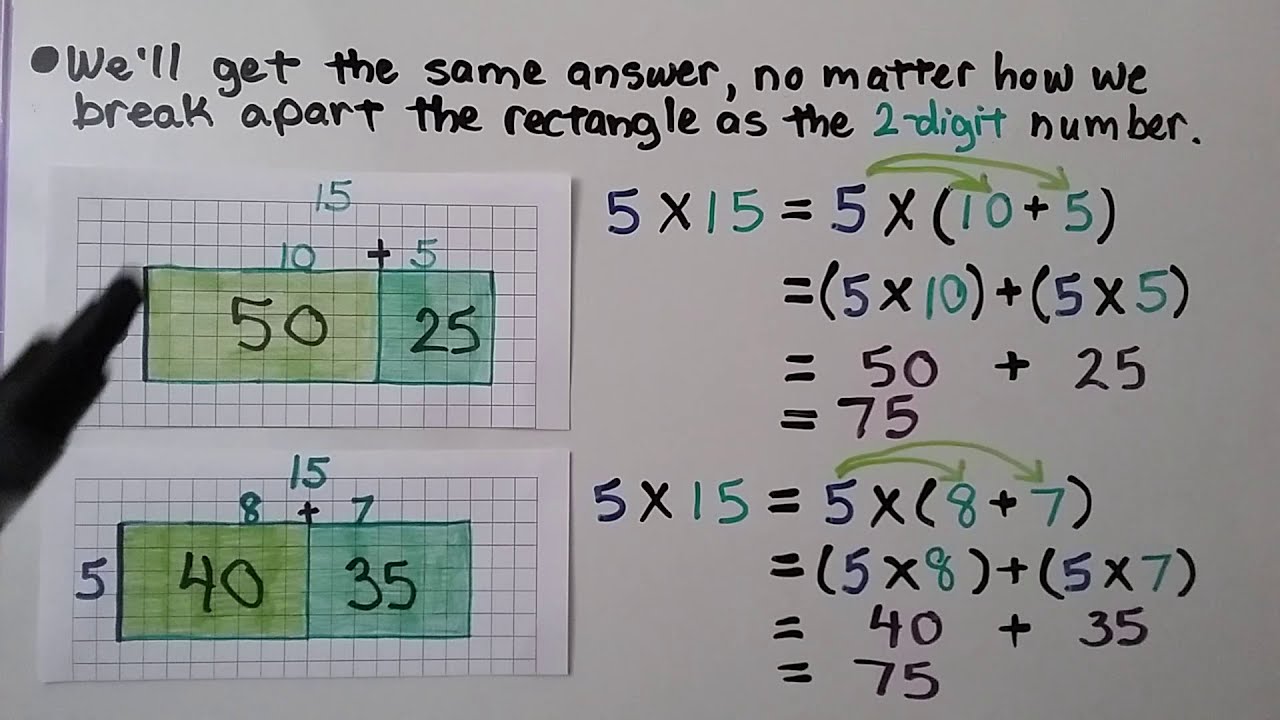 • We'll get the same answer, no matter how we
break apart the rectangle as the 2-digit number.
15
10 + 5
50 25
5 × 15 = 5 × (10 + 5)
= (5 × 10) + (5 × 5)
= 50 + 25
= 75
15
8 + 7
5 40 35
5 × 15 = 5 × (8 + 7)
= (5 × 8) + (5 × 7)
= 40 + 35
= 75